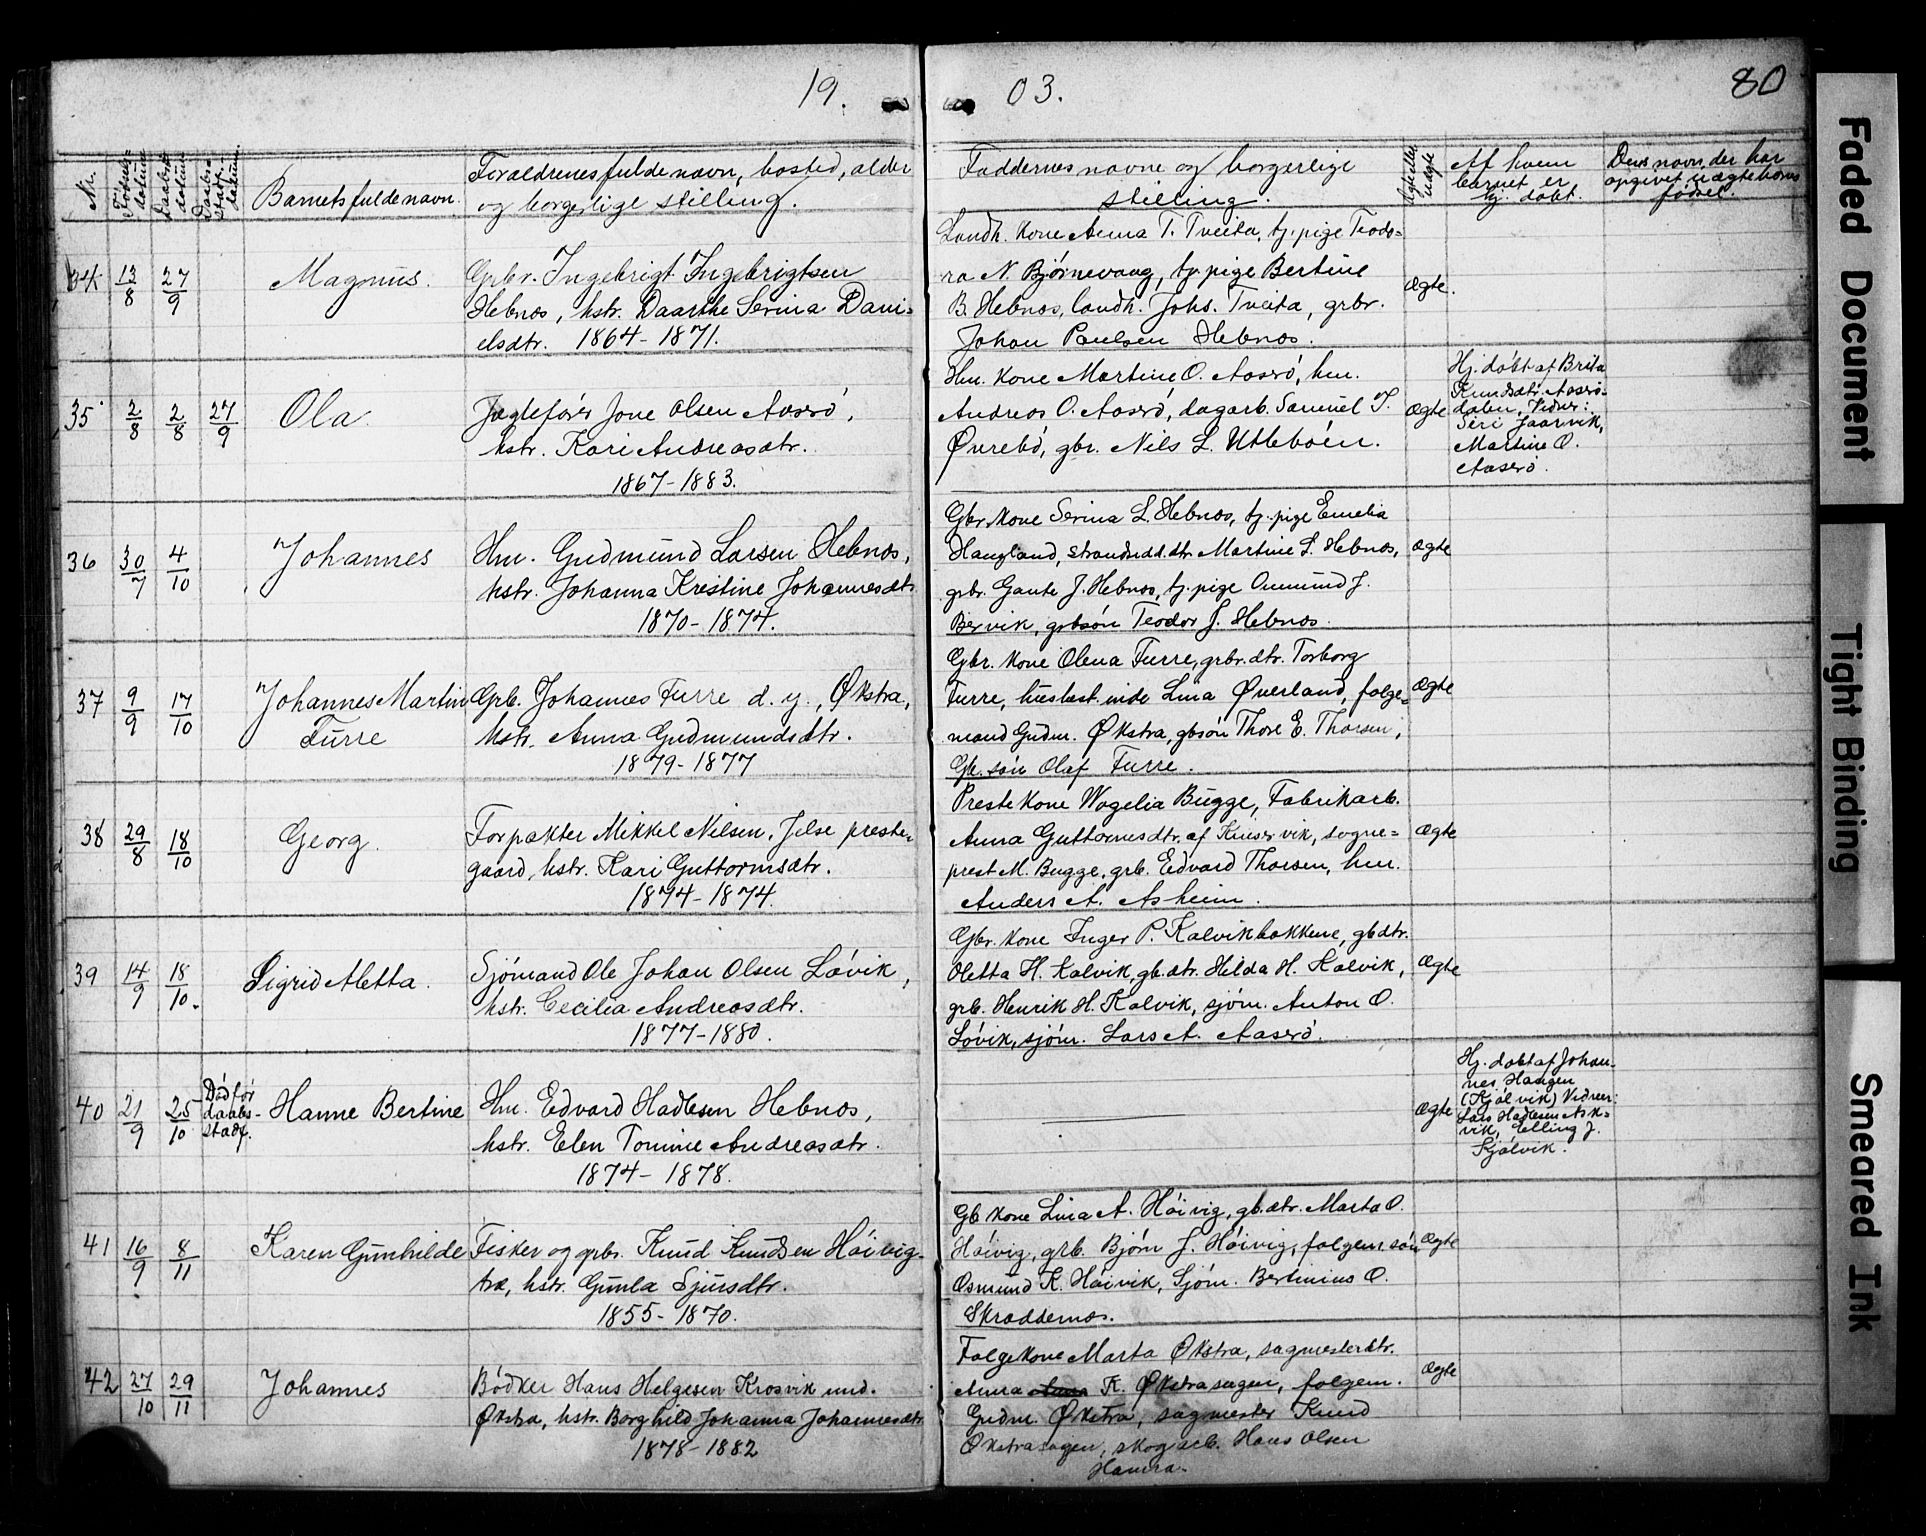 19. 03. 80
Nr.
Fødsels-
datum
Daabs-
datum
Daabs-
stadf.
datum.
Barnets fulde navn.
Foræeldrenes fulde navn, bosted, alder
og borgerlige stilling.
Faddernes navne og borgerlige
stilling.
Ægte eller
uægte
Af hvem
barnet er
hj. døbt.
Dens navn, der har
opgivet uægte barns
fødsel.
34 13/8 27/9
Magnus.
Grbr. Ingebrigt Ingebrigtsen
Hebnes, hstr. Daarthe Serina Dani-
elsdtr. 1864-1871.
Landh. kone Anna T. Tveita, tj. pige Teodo-
ra N. Bjørnevaag, tj. pige Bertine
B. Hebnes, landh. Johs. Tveita, grbr.
Johan Paulsen Hebnes.
Ægte.
35 2/8 2/8 27/9
Ola.
Jægtefører Jone Olsen Aaserø,
hstr. Kari Andreasdtr.
1867-1883.
Hm. kone Martine O. Aaserø, hm.
Andreas O. Aaserø, dagarb. Samuel T.
Øvrebø, gbr. Nils L. Utleboen.
Ægte
Hj. døbt af Brita
Knudsdtr. Aasrø-
dalen, Vidner:
Siri Jaarvik,
Martine O.
Aaserø.
36 30/7 4/10
Johannes
Hm. Gudmund Larsen Hebnes,
hstr. Johanna Kristine Johannesdtr.
1870-1874.
Gbr. kone Serina L. Hebnes, tj. pige Emelia
Haugland, strandsidd.dtr. Martine L. Hebnes,
grbr. Gaute J. Hebnes, tj. pige Ommund J.
Bervik, grbsøn Teodor J. Hebnes.
Ægte
37 9/9 17/10
Johannes Martin
Furre
Grb. Johannes Furre d. y., Økstra,
hstr. Anna Gudmundsdtr.
1879-1877
Gbr. kone Olena Furre, grbr. dtr. Torborg
Furre, huusbest.inde Lina Øverland, folge-
mand Gudm. Økstra, gbsøn Thore E. Thorsen,
Gb. søn Olaf Furre.
Ægte
38 29/8 18/10
Georg.
Forpakter Mikkel Nilsen, Jelse preste-
gaard, hstr. Kari Guttormsdtr.
1874-1874.
Prestekone Wogelia Bugge, Fabrikarb.
Anna Guttormsdtr. af Kinservik, sogne-
prest M. Bugge, grb. Edvard Thorsen, hm.
Anders A. Asheim.
Ægte
39 14/9 18/10.
Sigrid Aletta.
Sjømand Ole Johan Olsen Løvik,
hstr. Cecilia Andreasdtr.
1877-1880.
Gbr. kone Inger P. Kalvikbakkene, gbdtr.
Oletta H. Kalvik, gb.dtr. Hilda H. Kalvik,
grb. Henrik H. Kalvik, sjøm. Anton O.
Løvik, sjøm. Lars A. Aaserø.
Ægte
40 21/9 25/10
Død før
daabs-
stadf.
Hanne Bertine
Hm. Edvard Hadlesen Hebnes,
hstr. Elen Tomine Andreasdtr.
1874-1878.
Ægte
Hj. døbt af Johan-
nes Haugen
(Kjølvik) Vidner:
Lars Hadlesen Ask-
vik, Elling J.
Kjølvik.
41 16/9 8/11
Karen Gunhilde
Fisker og grbr. Knud Knudsen Høivig-
træ, hstr. Gunla Sjursdtr.
1855-1870.
Gb kone Lina A. Høivig, gb.dtr. Marta O.
Høivig, grb. Bjørn J. Høivig, folgem. søn
Osmund K. Høivik, Sjøm. Bertinius O.
Skraddernes.
Ægte
42 27/10 29/11
Johannes
Bødker Hans Helgesen Krosvik und.
Økstra, hstr. Borghild Johanna Johannesdtr
1878-1882
Folgekone Marta Økstra, sagmesterdtr.
Anna K. Økstrasagen, folgem.
Gudm. Økstra, sagmester Knud
Økstrasagen, skogarb. Hans Olsen
Hamra.
Ægte
Faded Document
Tight Binding
Smeared Ink